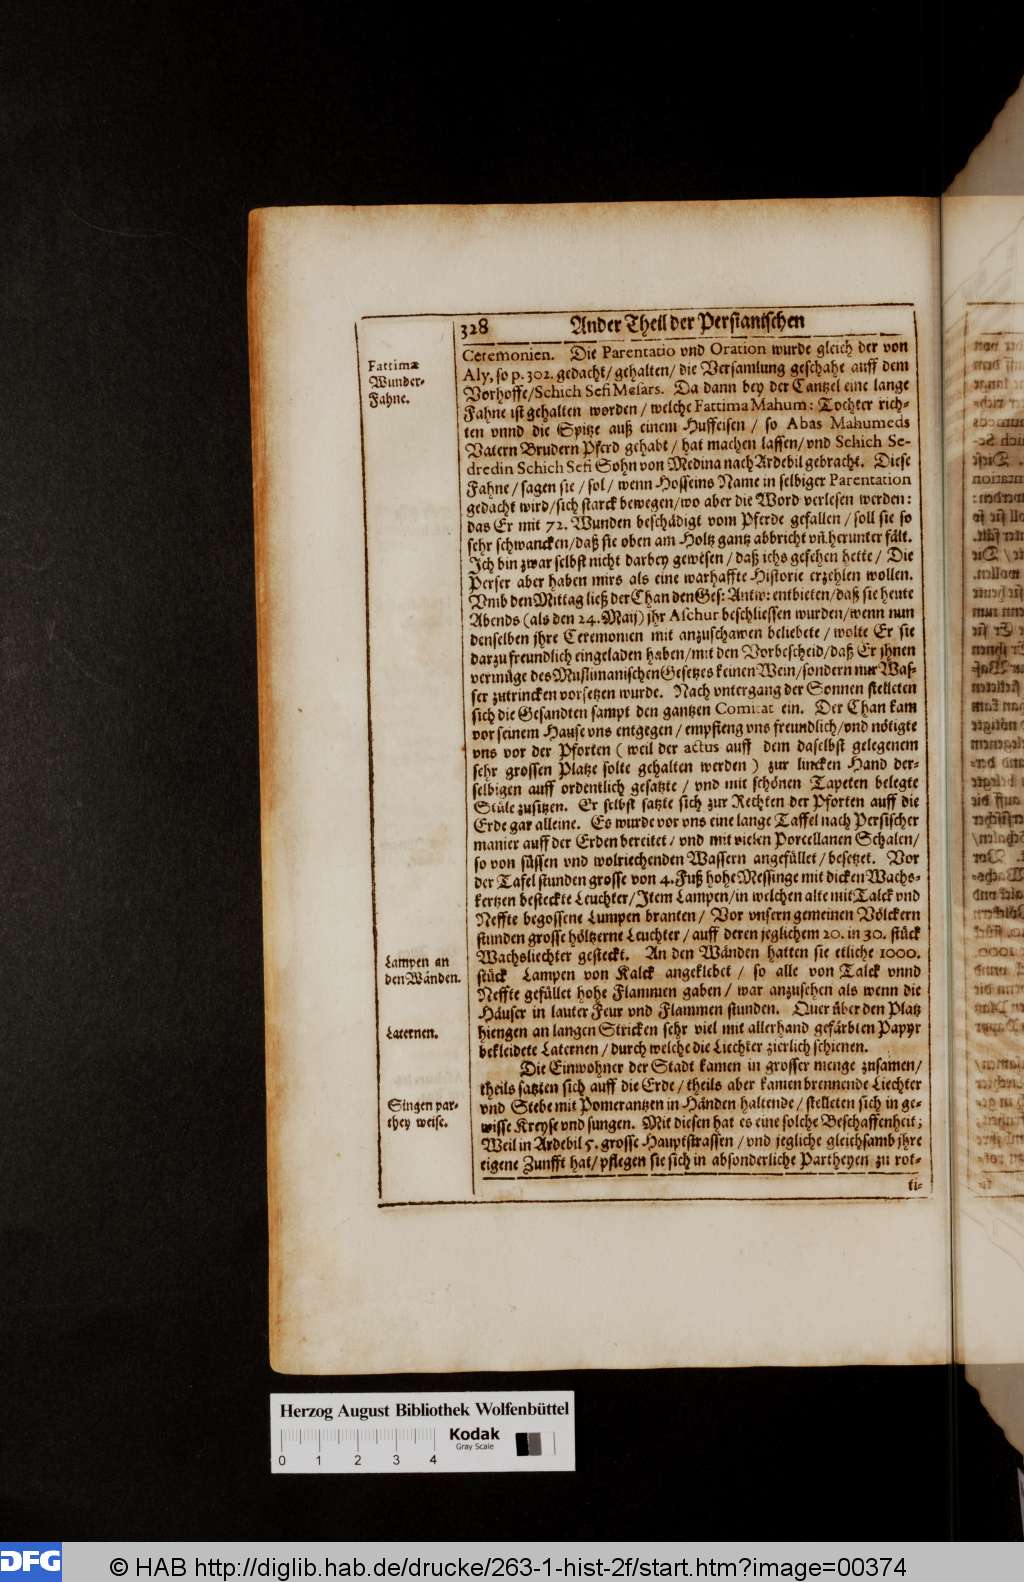 328 Ander Theil der Persianischen
Fattimæ
Wunder-
Fahne.
Ceremonien. Die Parentatio vnd Oration wurde gleich der von
Aly, so p. 302. gedacht/ gehalten/ die Versamlung geschahe auff dem
Vorhoffe/ Schich Sefi Mesars. Da dann bey der Cantzel eine lange
Fahne ist gehalten worden / welche Fattima Mahum: Tochter rich-
ten vnnd die Spitze auß einem Huffeisen / so Abas Mahumeds
Vatern Brudern Pferd gehabt / hat machen lassen/ vnd Schich Se-
dredin Schich Sefi Sohn von Medina nach Ardebil gebracht. Diese
Fahne / sagen sie / sol / wenn Hosseins Name in selbiger Parentation
gedacht wird/ sich starck bewegen/ wo aber die Word verlesen werden:
das Er mit 72. Wunden beschädigt vom Pferde gefallen / soll sie so
sehr schwancken/ daß sie oben am Holtz gantz abbricht vñ herunter fält.
Ich bin zwar selbst nicht darbey gewesen / daß ichs gesehen hette / Die
Perser aber haben mirs als eine warhaffte Historie erzehlen wollen.
Vmb den Mittag ließ der Chan den Ges: Antw: entbieten/ daß sie heute
Abends (als den 24. Maij) jhr Aschur beschliessen wurden/ wenn nun
denselben jhre Ceremonien mit anzuschawen beliebete / wolte Er sie
darzu freundlich eingeladen haben/ mit den Vorbescheid/ daß Er jhnen
vermüge des Muslimanischen Gesetzes keinen Wein/ sondern nur Was-
ser zutrincken vorsetzen wurde. Nach vntergang der Sonnen stelleten
sich die Gesandten sampt den gantzen Comitat ein. Der Chan kam
vor seinem Hause vns entgegen / empfieng vns freundlich/ vnd nötigte
vns vor der Pforten ( weil der actus auff dem daselbst gelegenem
sehr grossen Platze solte gehalten werden ) zur lincken Hand der-
selbigen auff ordentlich gesatzte / vnd mit schönen Tapeten belegte
Stüle zusitzen. Er selbst satzte sich zur Rechten der Pforten auff die
Erde gar alleine. Es wurde vor vns eine lange Taffel nach Persischer
manier auff der Erden bereitet / vnd mit vielen Porcellanen Schalen/
so von süssen vnd wolriechenden Wassern angefüllet / besetzet. Vor
der Tafel stunden grosse von 4. Fuß hohe Messinge mit dicken Wachs-
kertzen besteckte Leuchter/ Item Lampen/ in welchen alte mit Talck vnd
Neffte begossene Lumpen branten / Vor vnsern gemeinen Völckern
stunden grosse höltzerne Leuchter / auff deren jeglichem 20. in 30. stück
Wachsliechter gesteckt. An den Wänden hatten sie etliche 1000.
Lampen an
den Wänden.
stück Lampen von Kalck angeklebet / so alle von Talck vnnd
Neffte gefüllet hohe Flammen gaben / war anzusehen als wenn die
Häuser in lauter Feur vnd Flammen stunden. Quer über den Platz
Laternen.
hiengen an langen Stricken sehr viel mit allerhand gefärbten Papyr
bekleidete Laternen / durch welche die Liechter zierlich schienen.
Die Einwohner der Stadt kamen in grosser menge zusamen/
theils satzten sich auff die Erde / theils aber kamen brennende Liechter
Singen par-
they weise.
vnd Stebe mit Pomerantzen in Händen haltende / stelleten sich in ge-
wisse Kreyse vnd sungen. Mit diesen hat es eine solche Beschaffenheit;
Weil in Ardebil 5. grosse Hauptstrassen / vnd jegliche gleichsamb jhre
eigene Zunfft hat/ pflegen sie sich in absonderliche Partheyen zu rot-
ti-
Herzog August Bibliothek Wolfenbüttel
Kodak
Gray Scale
0 1 2 3 4
DFG © HAB http://diglib.hab.de/drucke/263-1-hist-2f/start.htm?image=00374